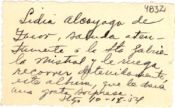 48321
Lidia Alcayaga de
Tovor, saluda aten-
tamente a la Sta Gabrie
la Mistral y le ruega
recorrer detenidamente,
este album, que le dará
una grata sorpresa.
Stgo 10-18-54